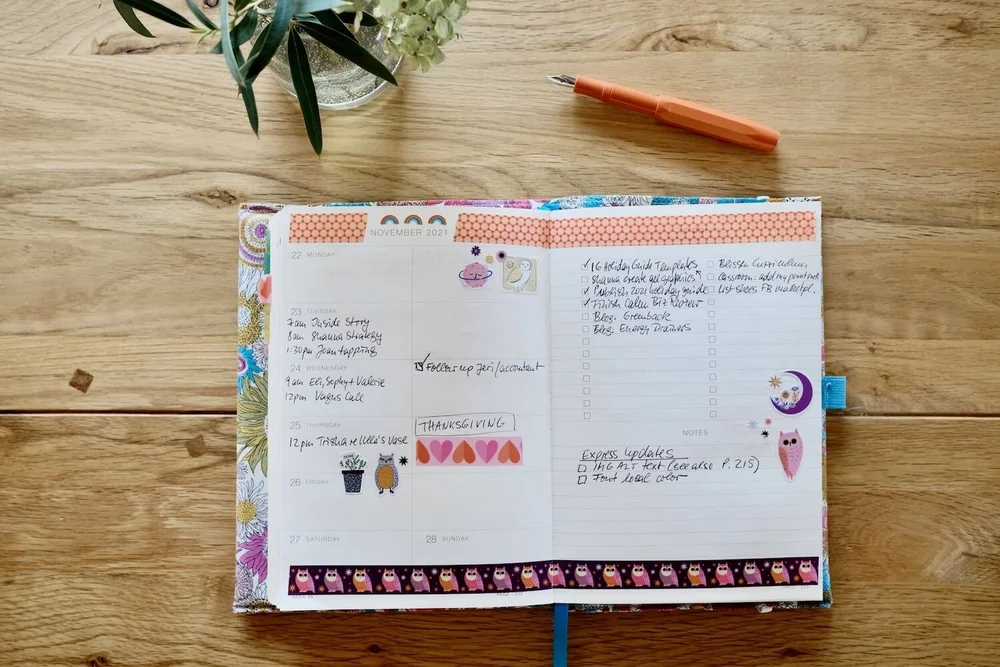 NOVEMBER 2021
22 MONDAY
23 TUESDAY
7am Inside Story
8am Shanna Strategy
1:30pm Joan tapping
24 WEDNESDAY
9am Eli, Sophy + Valerie
12pm Vagus Call
Follow up Jeri/accountant
25 THURSDAY
12pm Trisha re Ulla's vase
THANKSGIVING
26 FRIDAY
27 SATURDAY
28 SUNDAY
16 Holiday Guide Templates
Shanna create alt graphics
Publish 2021 holiday guide
Finish Calm Biz Review
Blog: Greenback
Blog: Energy Drainers
Blissen Curriculum
Classroom: add my
list shoes FB
NOTES
Express Updates
IMG ALT text (see also P. 215)
Font local color